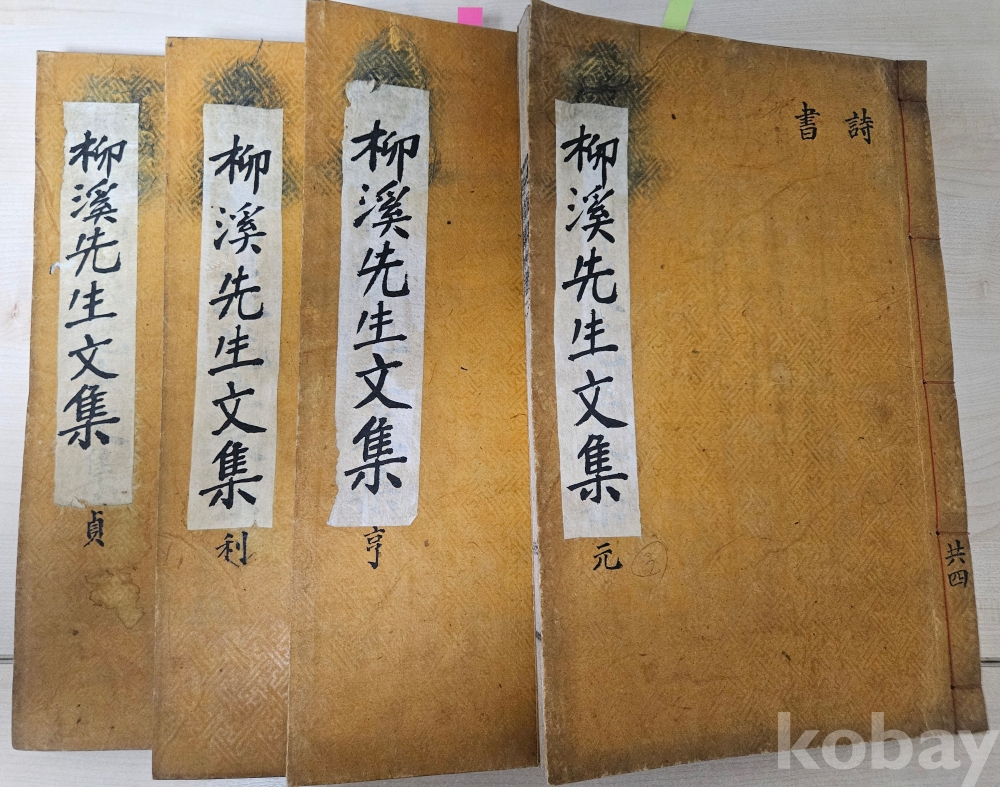 詩
書
柳溪先生文集
元
共四
柳溪先生文集
亨
柳溪先生文集
利
柳溪先生文集
貞
kobay